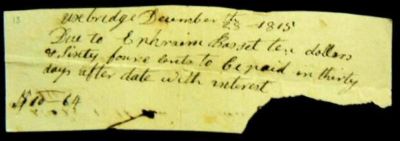 13
Uxbridge December 28th 1815
Due to Ephraim Basset ten dollars
& Sixty four cents to be paid in thirty
days after date with interest
$10-64